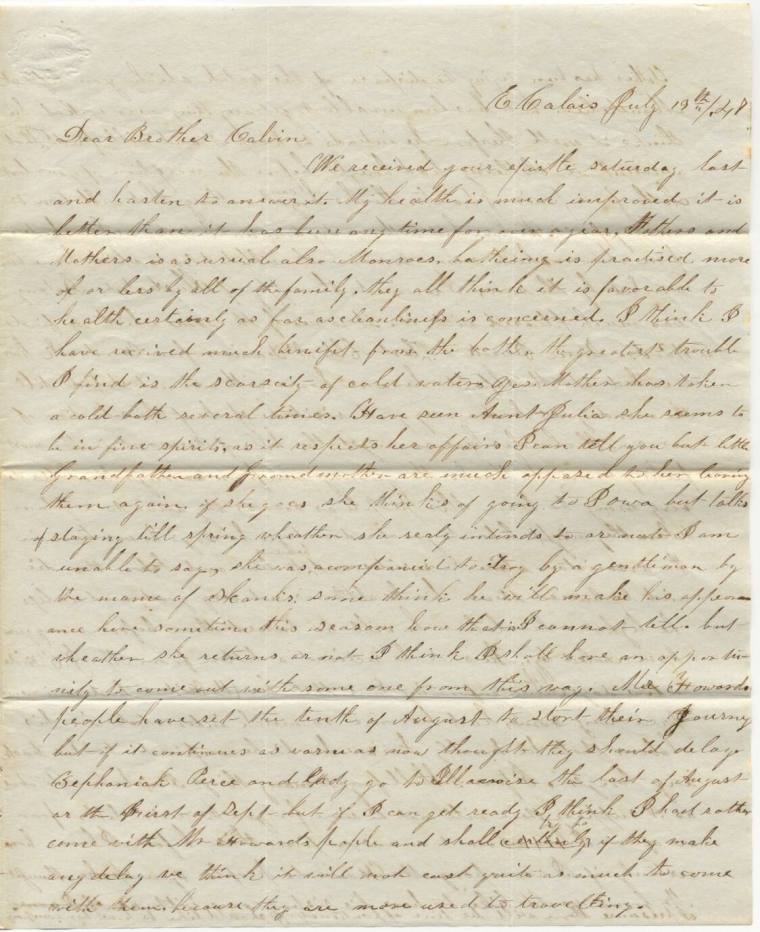 E Calais July 19th/48
Dear Brother Calvin
We received your epistle saturday last
and hasten to answer it. My health is much improved it is
better than it has been any time for over a year, Fathers and
Mothers is as usual also Monroes. batheing is practised more
of or less by all of the family. they all think it is favorable to
health certainly as far as cleanliness is concerned. I think I
have received much benifit from the bath. the greatest trouble
I find is the scarsity of cold water. yes Mother has taken
a cold bath several times. Have seen Aunt Julia she seems to
be in fine spirits, as it respects her affairs I can tell you but little
Grandfather and Grandmother are much opposed to her leaving
them again, if she goes she thinks of going to Iowa but talks
of staying till spring wheather she realy intends to or not I am
unable to say, she was acompanied to Troy by a gentleman by
the name of Shanks. some think he will make his appear-
ance here sometime this season how that is I cannot tell. but
wheather she returns or not I think I shall have an opportu-
nity to come out with some one from this way. Mr Howards
people have set the tenth of August to start their Journy
but if it continues as warm as now thought they should delay
Zephaniah Perce and Lady go to Illanoise the last of August
or the first of Sept but if I can get ready I think I had rather
come with Mr Howards people and shall try to if they make
any delay we think it will not cost quite as much to come
with them because they are more used to travelling.